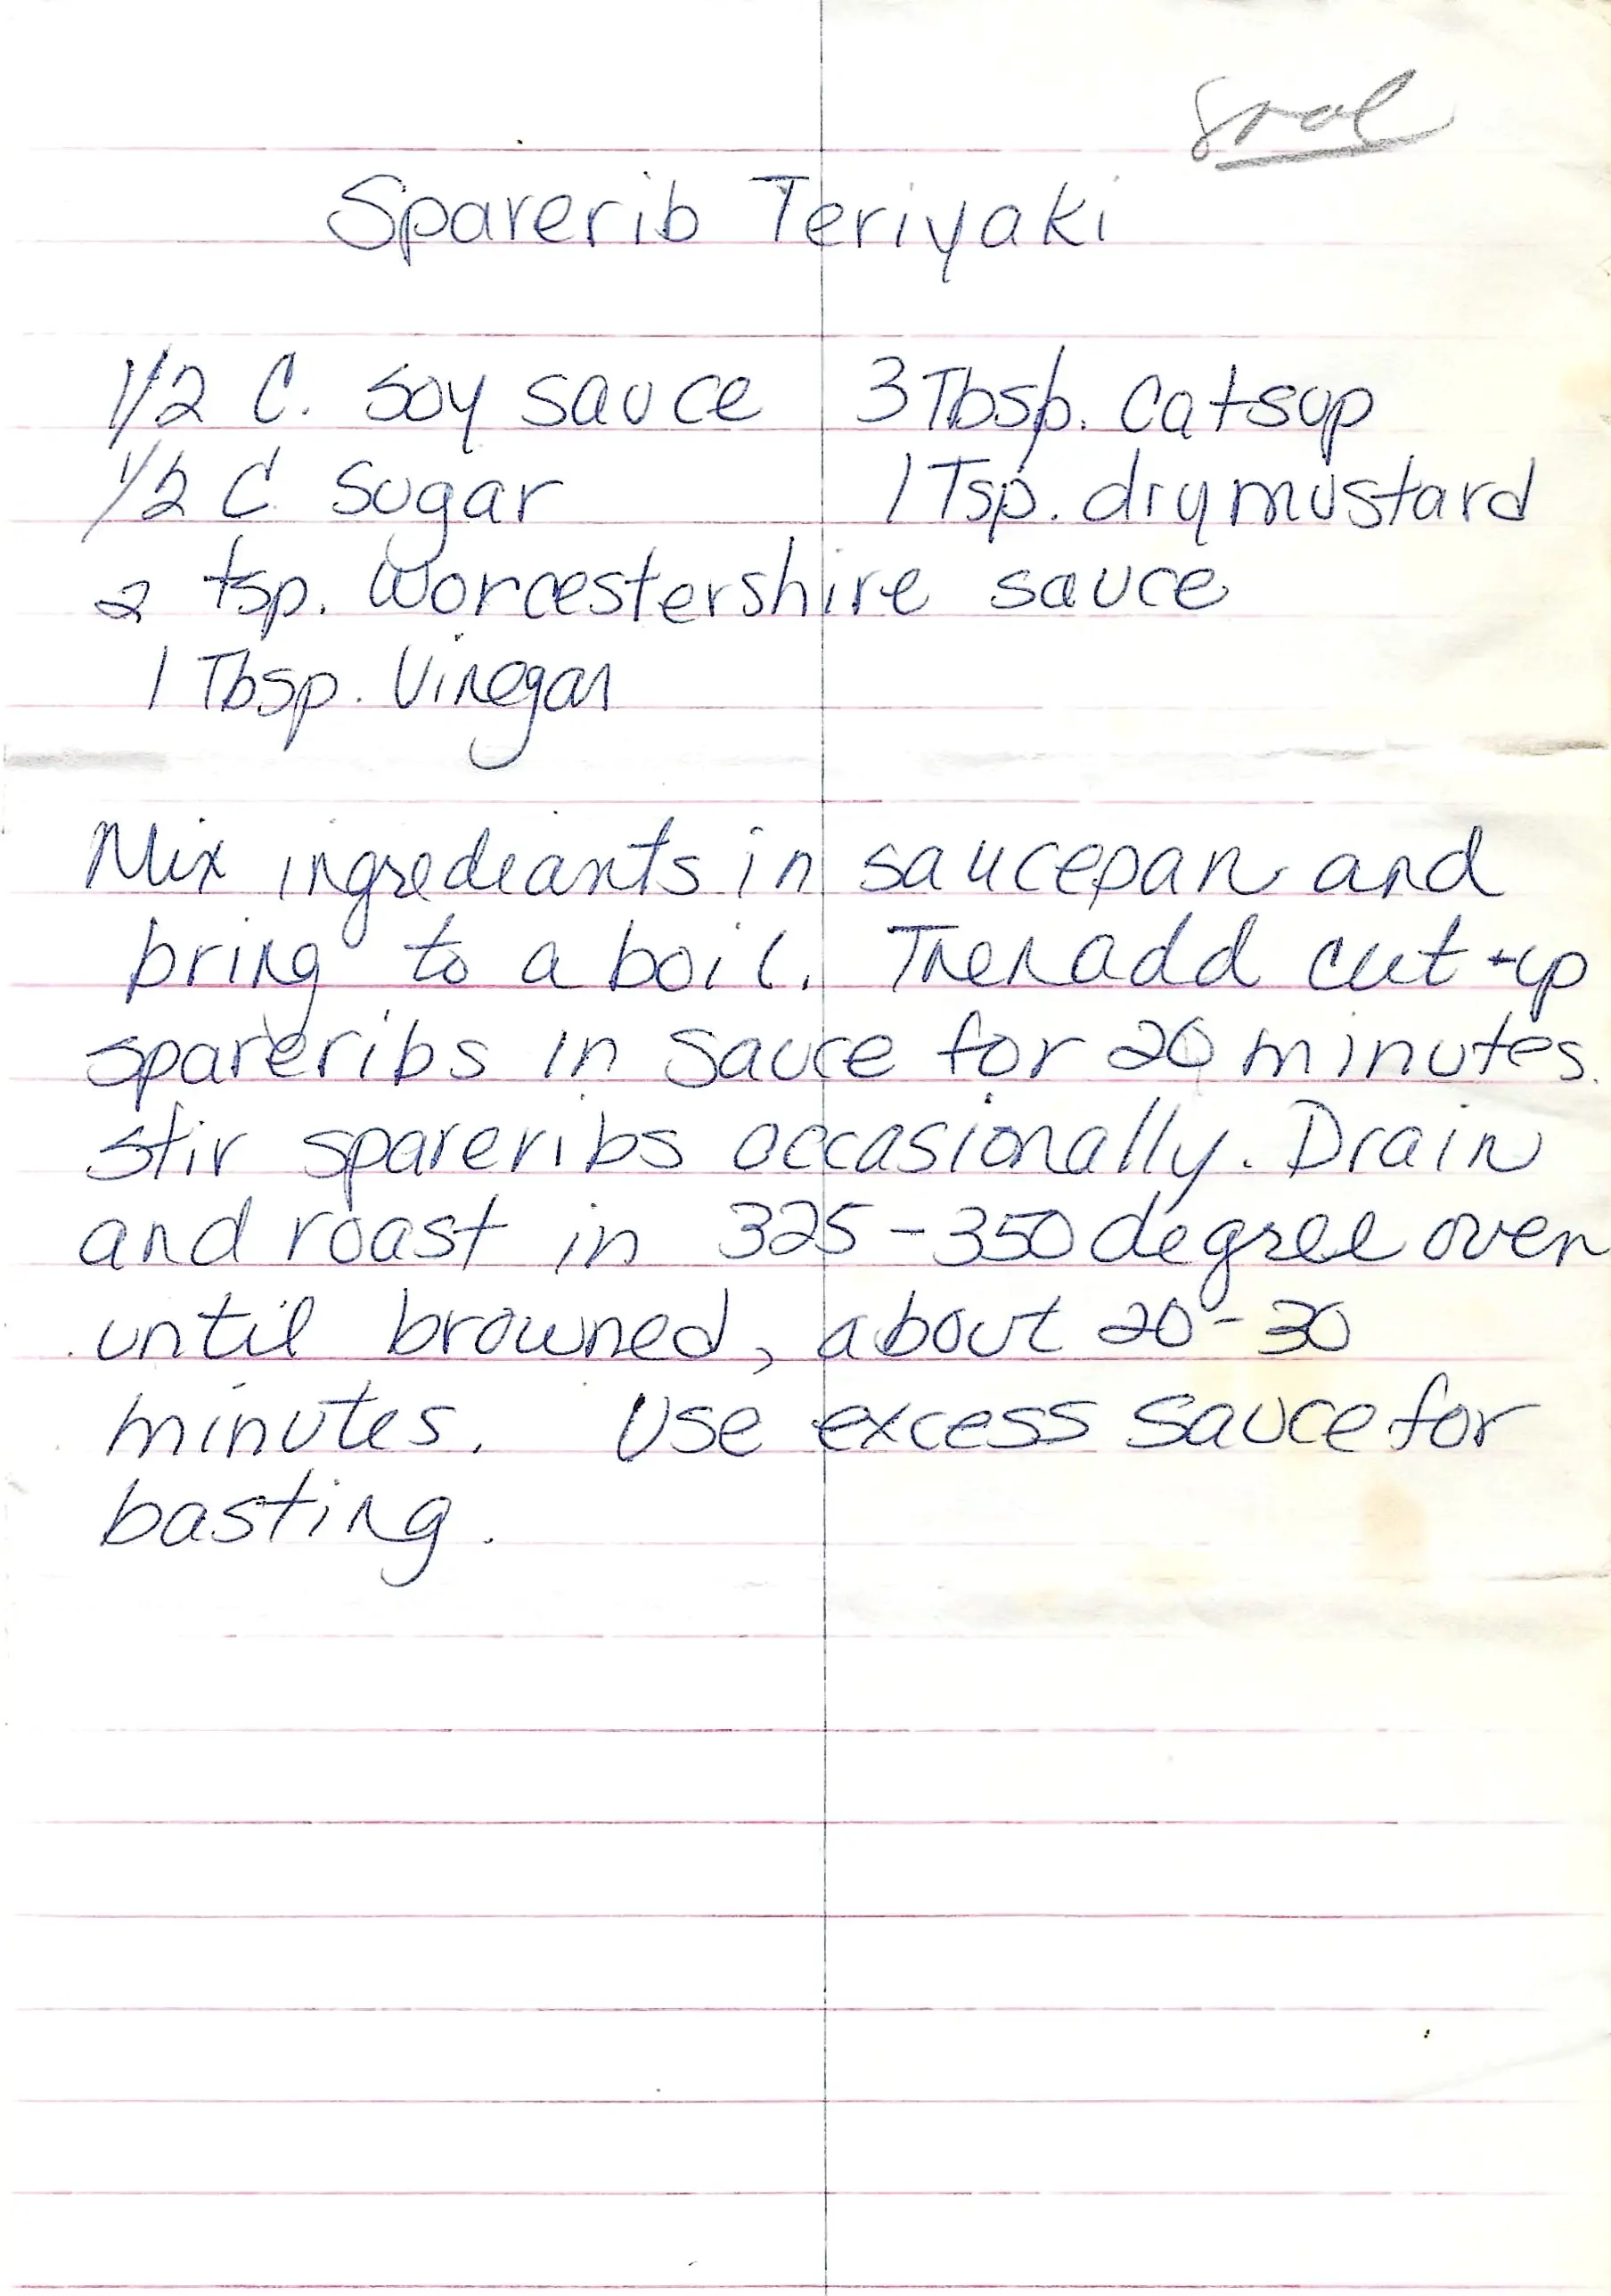 Sparerib Teriyaki
1/2 C. soy sauce 3 Tbsp. Catsup
1/2 C. sugar 1 Tsp. dry mustard
2 tsp. Worcestershire sauce
1 Tbsp. Vinegar
Mix ingrediants in saucepan and
bring to a boil. Then add cut-up
spareribs in sauce for 20 minutes.
stir spareribs occasionally. Drain
and roast in 325-350 degree oven
until browned, about 20-30
minutes. Use excess sauce for
basting.